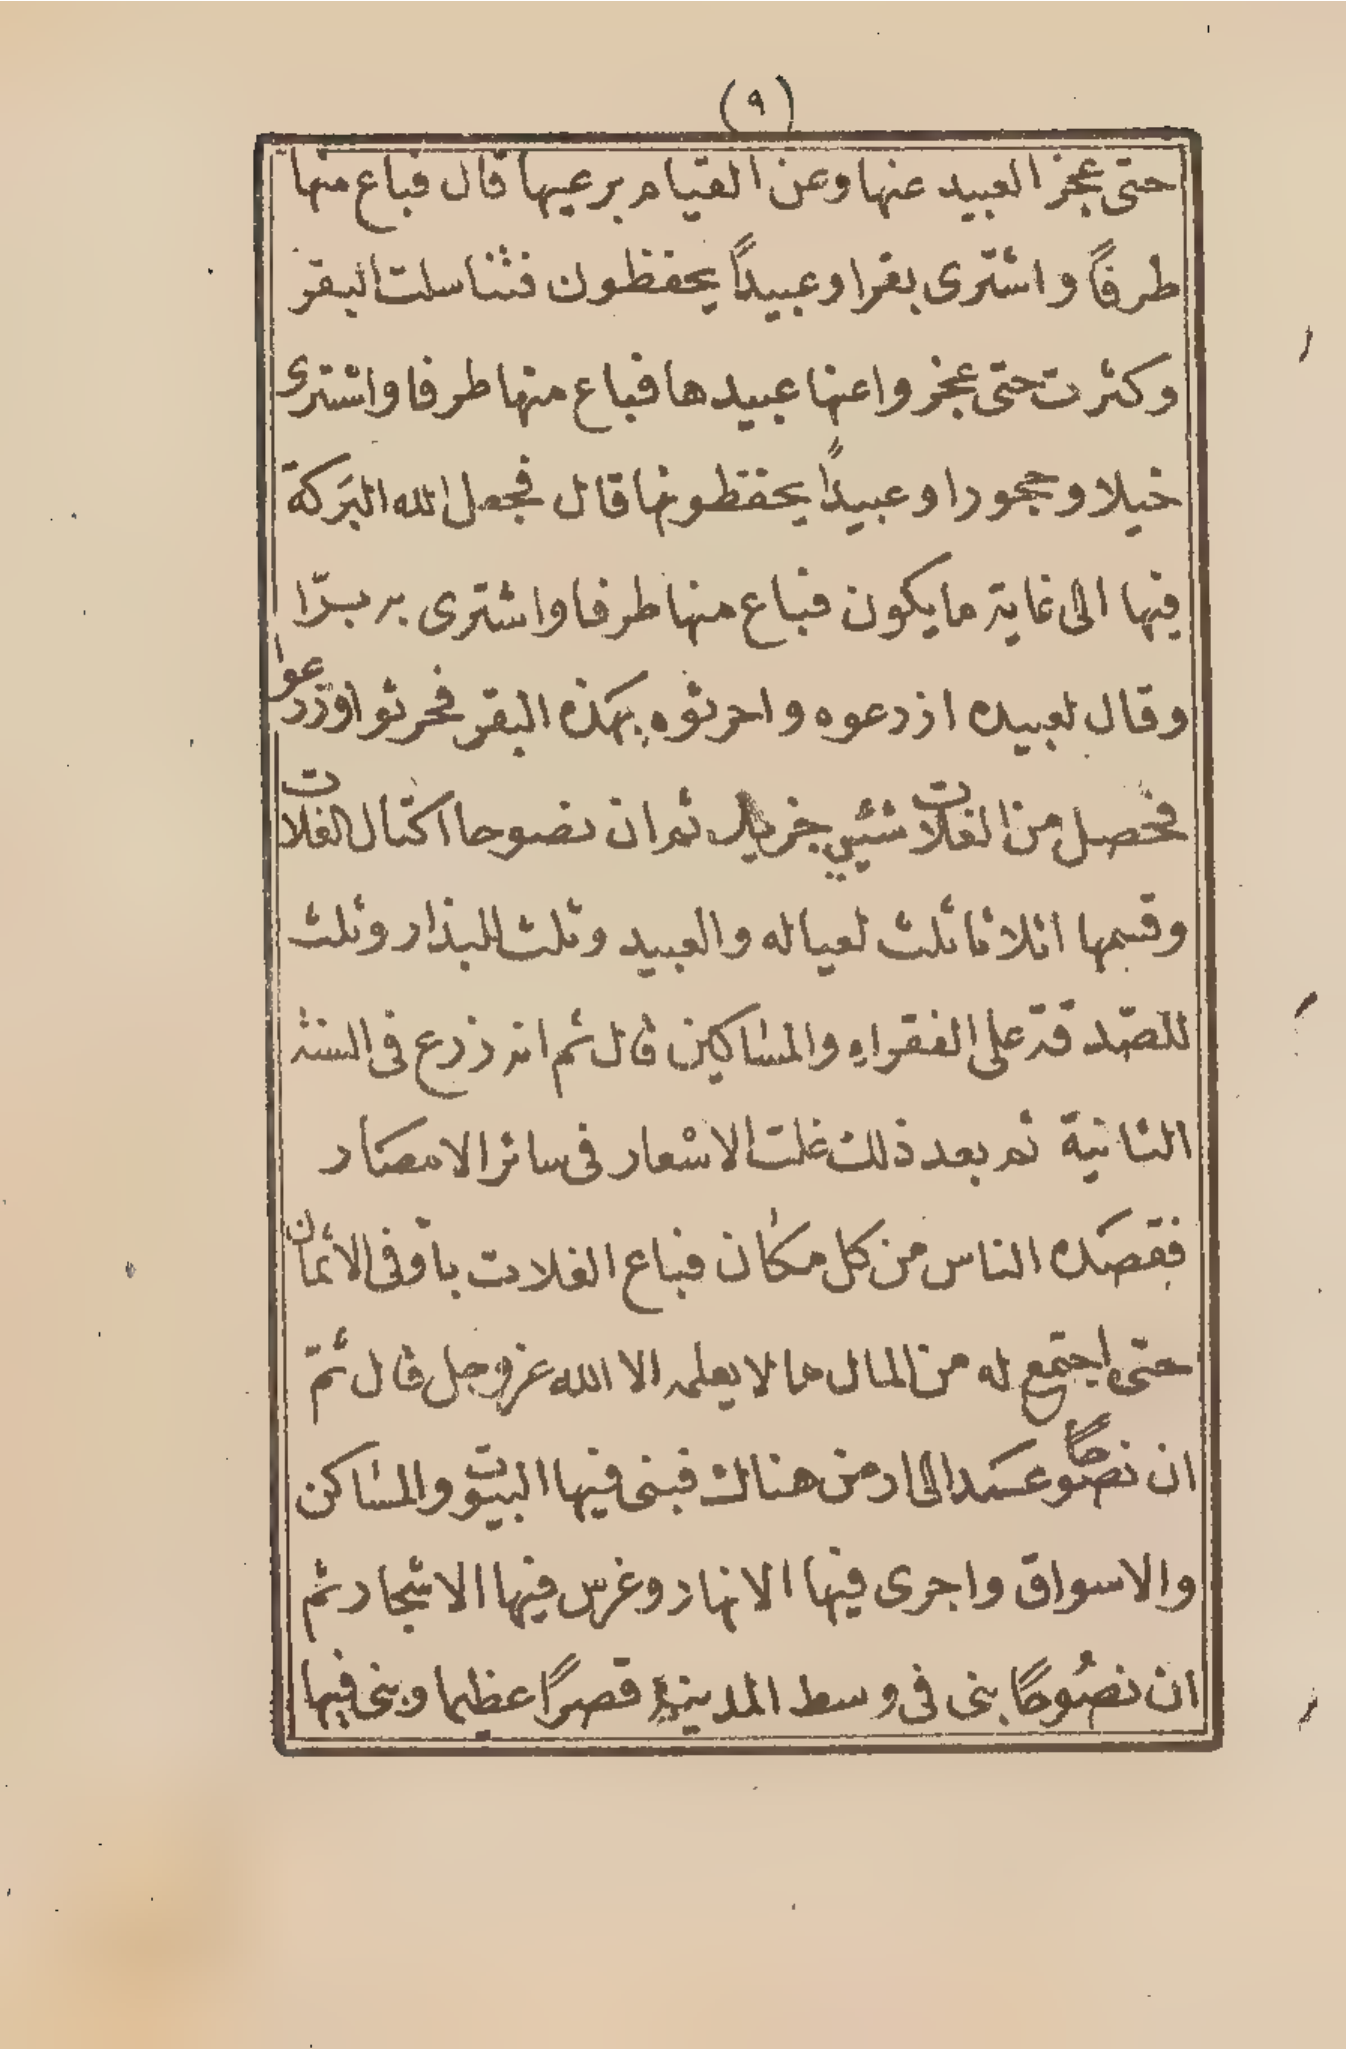 (٩)
حتى عجز العبيد عنها وعن القيام برعيها قال فباع منها
طرفاً واشترى بقرا وعبيداً يحفظون فتناسلت البقر
وكثرت حتى عجزوا عنها عبيدها فباع منها طرفا واشترى
خيلا وحجورا وعبيداً يحفظونها قال فجعل الله البركة
فيها الى غاية ما يكون فباع منها طرفا واشترى بر بزّا
وقال لعبيده ازدعوه واحرثوه بهذه البقر فحرثوا وزدعوا
فحصل من الغلات شئيي جزيل ثم ان نصوحا اكتال الغلات
وقسمها اثلاثا ثلث لعياله والعبيد وثلث للبذار وثلث
للصّدقة على الفقراء والمساكين قال ثم انه زرع فى السنة
الثانية ثم بعد ذلك غلت الاسعار فى سائر الامصار
فقصده الناس من كل مكان فباع الغلات باوفى الاثمان
حتى اجتمع له من المال ما لا يعلمه الا الله عز وجل قال ثمّ
ان نصوحاً عمد الى ارمن هناك فبنى فيها البيوت والمساكن
والاسواق واجرى فيها الانهار وغرس فيها الاشجار ثم
ان نصُوحًا بنى فى وسط المدينة قصرًا عظيما وبنى فيها